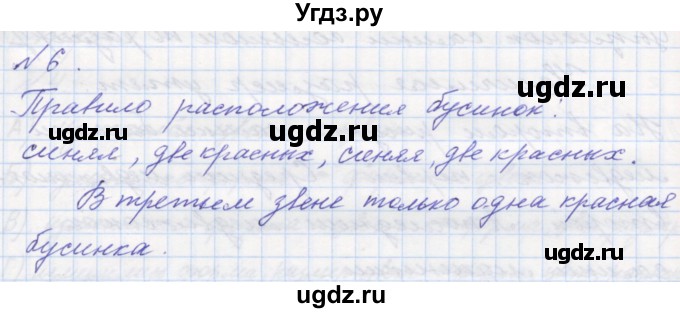 Угдз.ру
№ 6.
Правило расположения бусинок:
синяя, две красных, синяя, две красных.
В третьем звене только одна красная
бусинка.
ugdz.ru ugdz.ru
ugdz.ru ugdz.ru
ugdz.ru